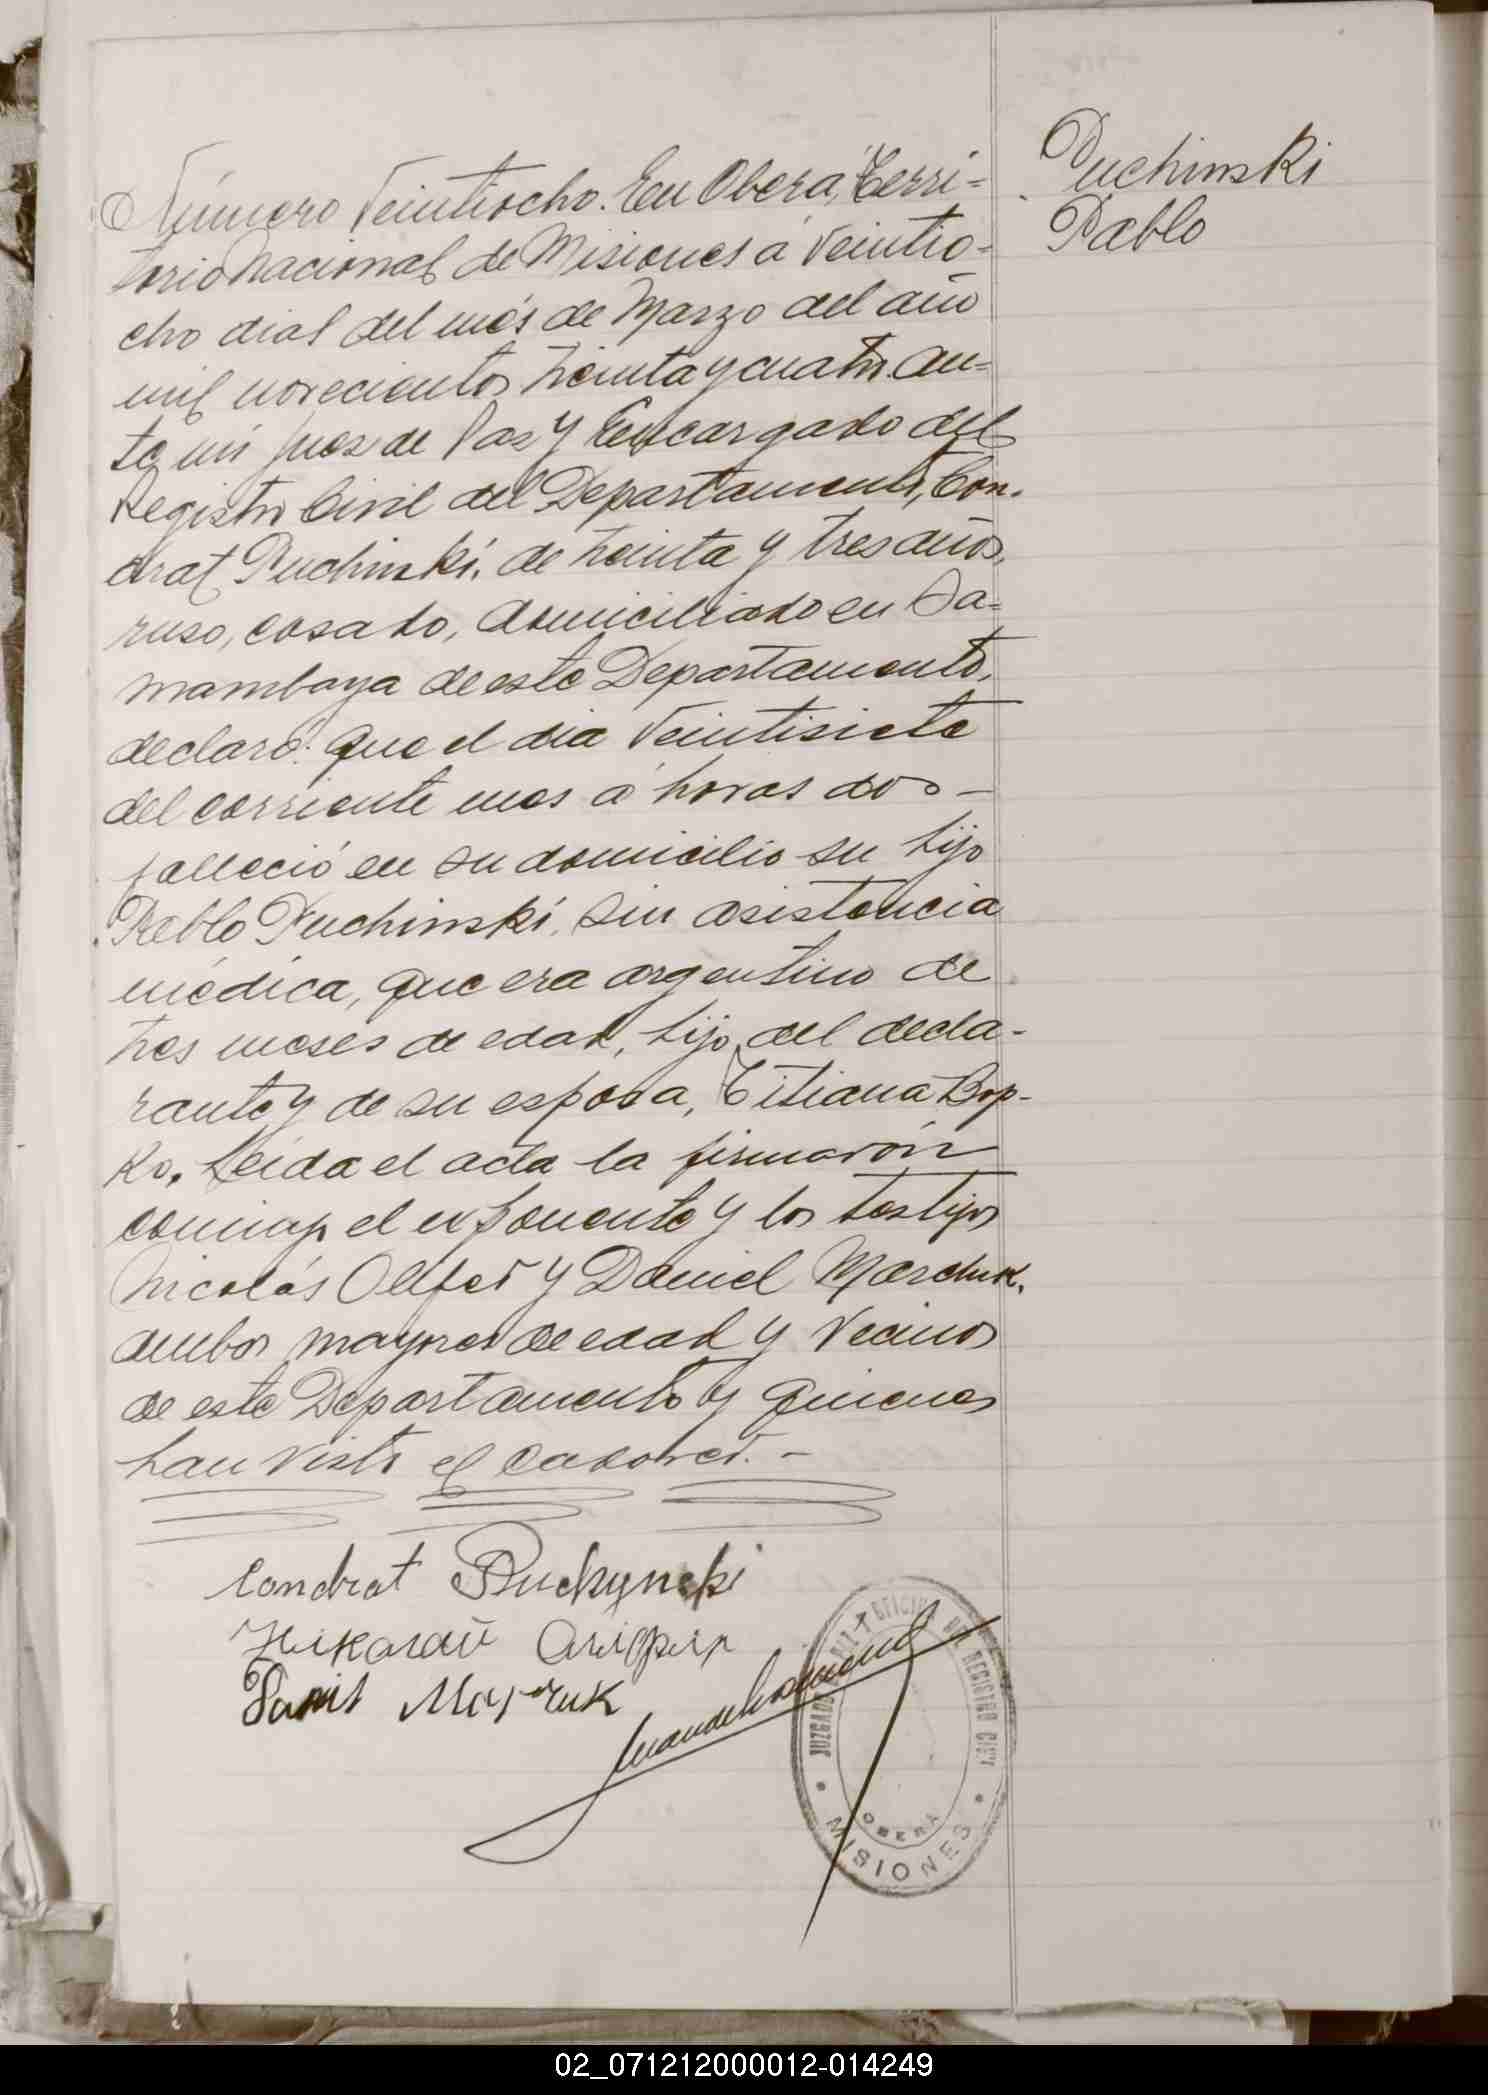 Puchinski
Pablo
Número Veintiocho. En Oberá, Terri=
torio Nacional de Misiones á veintio=
cho dias del més de Marzo del año
mil novecientos treinta y cuatro. An=
te mi Juez de Paz y Encargado del
Registro Civil del Departamento, Con-
drat Puchinski, de treinta y tres años,
ruso, casado, domiciliado en Sa=
mambaya de este Departamento,
declaró: Que el dia veintisiete
del corriente mes á horas dos -
falleció en su domicilio su hijo
Pablo Puchinski, sin asistencia
médica, que era argentino de
tres meses de edad, hijo del decla-
rante y de su esposa, Titiana Bop-
ko. Leida el acta la firmarón
conmigo el exponente y los testigos
Nicolás Olifer y Daniel Marchuk,
ambos mayores de edad y vecinos
de este Departamento y quienes
han visto el cadaver. -
Condrat Puchynski
Николай Олифир
Данил Марчук
JUZGADO DE PAZ Y OFICINA DEL REGISTRO CIVIL
OBERA
MISIONES
02_071212000012-014249